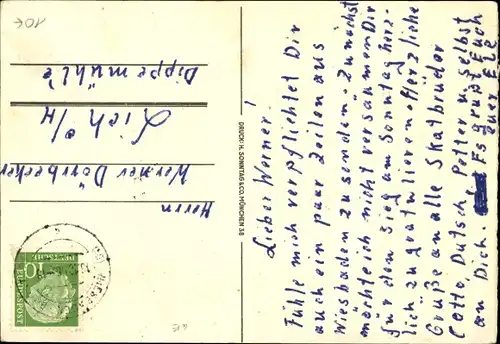 Lieber Werner!
Fühle mich verpflichtet Dir
auch ein paar Zeilen aus
Wiesbaden zu senden. Zunächst
möchte ich nicht versäumen Dir
für den Sieg am Sonntag herz-
lich zu gratulieren. Herzliche
Grüße an alle Skatbrüder
Otto Dutsch. Petter u. selbst
an Dich. Es grüßt Euch
Euer
DRUCK: H. SONNTAG & CO., MÜNCHEN 38
Herrn
Werner Dörrbecker
Lich o/H
Dippemühle
10
DEUTSCHE
BUNDESPOST
10€